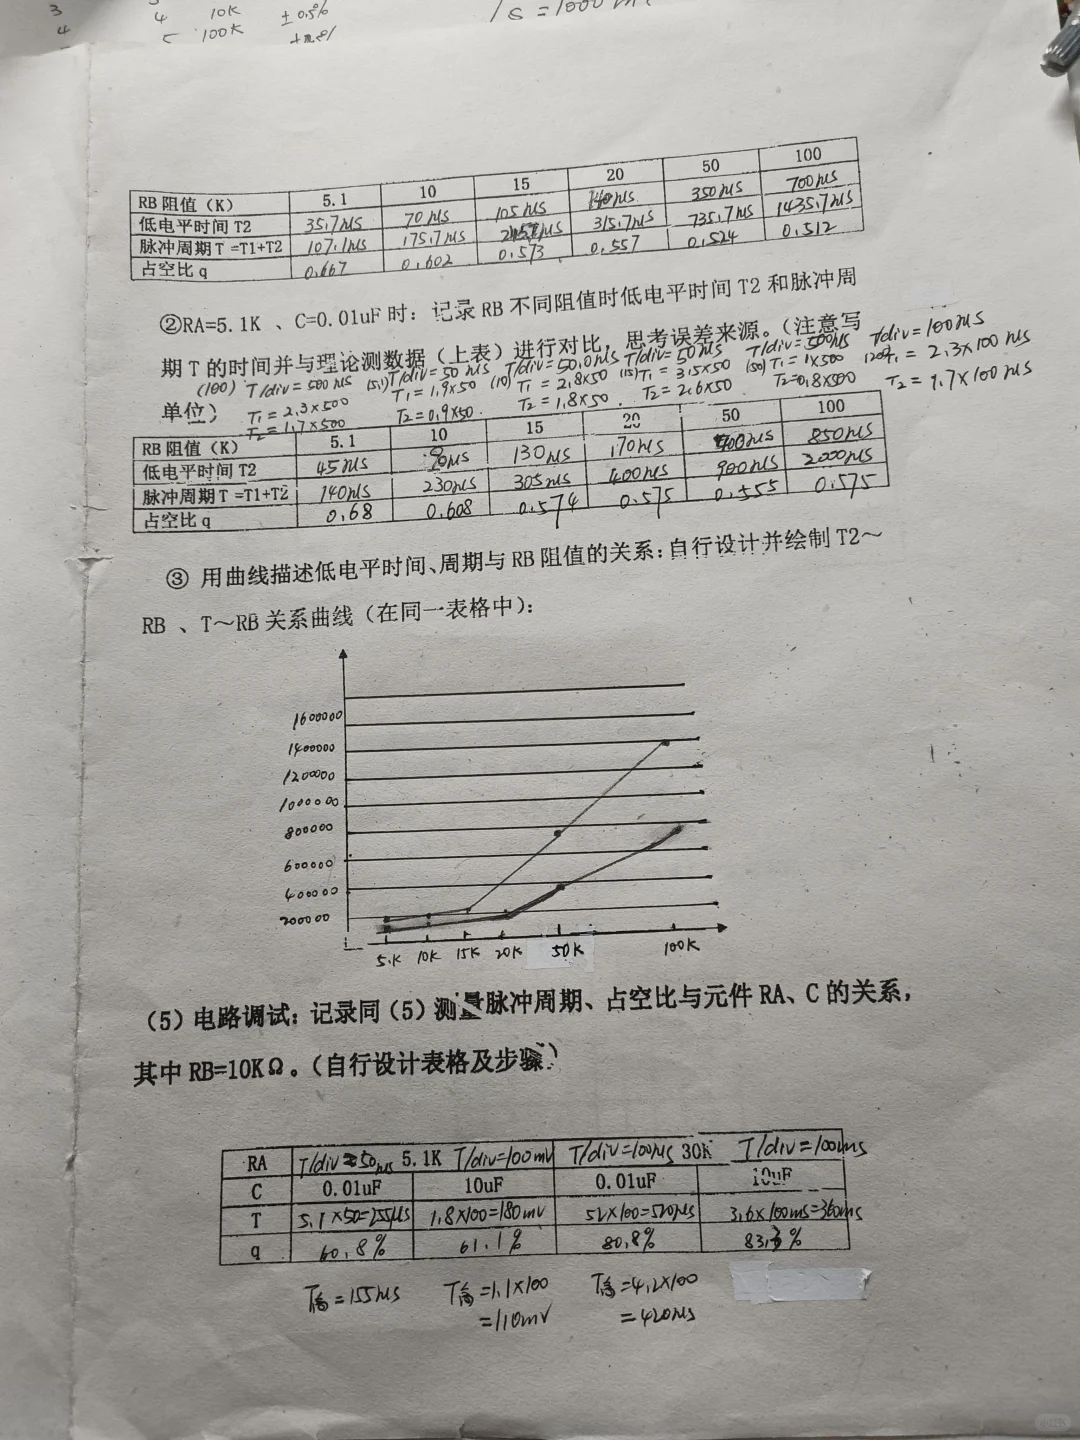 3
4
4 10K ±0.5%
5 100K
RB 阻值（K） 5.1 10 15 20 50 100
低电平时间 T2 35.7us 70us 105us 140us 350us 700us
脉冲周期 T =T1+T2 107.1us 175.7us 315.7us 735.7us 1435.7us
占空比 q 0.667 0.602 0.573 0.557 0.524 0.512
②RA=5.1K 、C=0.01uF 时：记录 RB 不同阻值时低电平时间 T2 和脉冲周
期 T 的时间并与理论测数据（上表）进行对比，思考误差来源。（注意写
单位）
(100) T/div=500us (5.1) T/div=50us (10) T/div=50.0us (15) T/div=50us (50) T/div=500us (20) T/div=100us
T1=2.3×500 T1=1.9×50 T1=2.8×50 T1=3.5×50 T1=1×500 T1=2.3×100us
T2=1.7×500 T2=0.9×50. T2=1.8×50. T2=2.6×50 T2=0.8×500 T2=1.7×100us
RB 阻值（K） 5.1 10 15 20 50 100
低电平时间 T2 45us 90us 130us 170us 400us 850us
脉冲周期 T =T1+T2 140us 230us 305us 400us 900us 2000us
占空比 q 0.68 0.608 0.574 0.575 0.555 0.575
③ 用曲线描述低电平时间、周期与 RB 阻值的关系：自行设计并绘制 T2～
RB 、T～RB 关系曲线（在同一表格中）：
1600000
1400000
1200000
1000000
800000
600000
400000
200000
5.1K 10K 15K 20K 50K 100K
（5）电路调试：记录同（5）测量脉冲周期、占空比与元件 RA、C 的关系，
其中 RB=10KΩ。（自行设计表格及步骤）
RA T/div=50us 5.1K T/div=100mV T/div=100us 30K T/div=100ms
C 0.01uF 10uF 0.01uF 10uF
T 5.1×50=255us 1.8×100=180mv 52×100=520us 3.6×100ms=360ms
q 60.8% 61.1% 80.8% 83.3%
T高=155us T高=1.1×100 T高=4.2×100
=110mV =420us